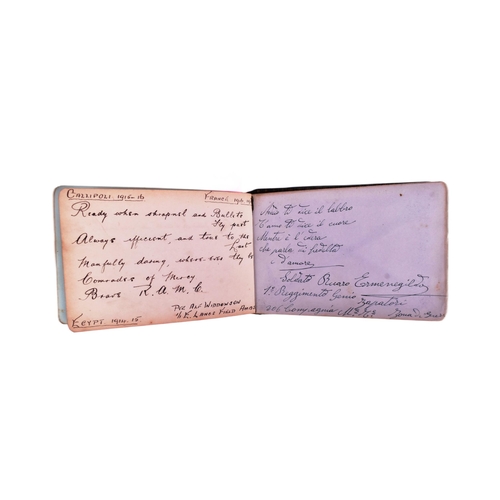 GALLIPOLI. 1915-16 FRANCE 191
Ready when shrapnel and Bullets
fly past
Always efficient, and true to the
last
Manfully daring, where ere they be
Comrades of Mercy
Brave R.A.M.C.
Pte Alf Widdowson
E. Lancs Field Amb
EGYPT 1914-15
ti dice il labbro
T'amo ti dice il cuore
è l'
parla di fedeltà
d'amore
Soldato Ermenegildo
1° Reggimento Genio
Zapatori
Compagnia
Zona di